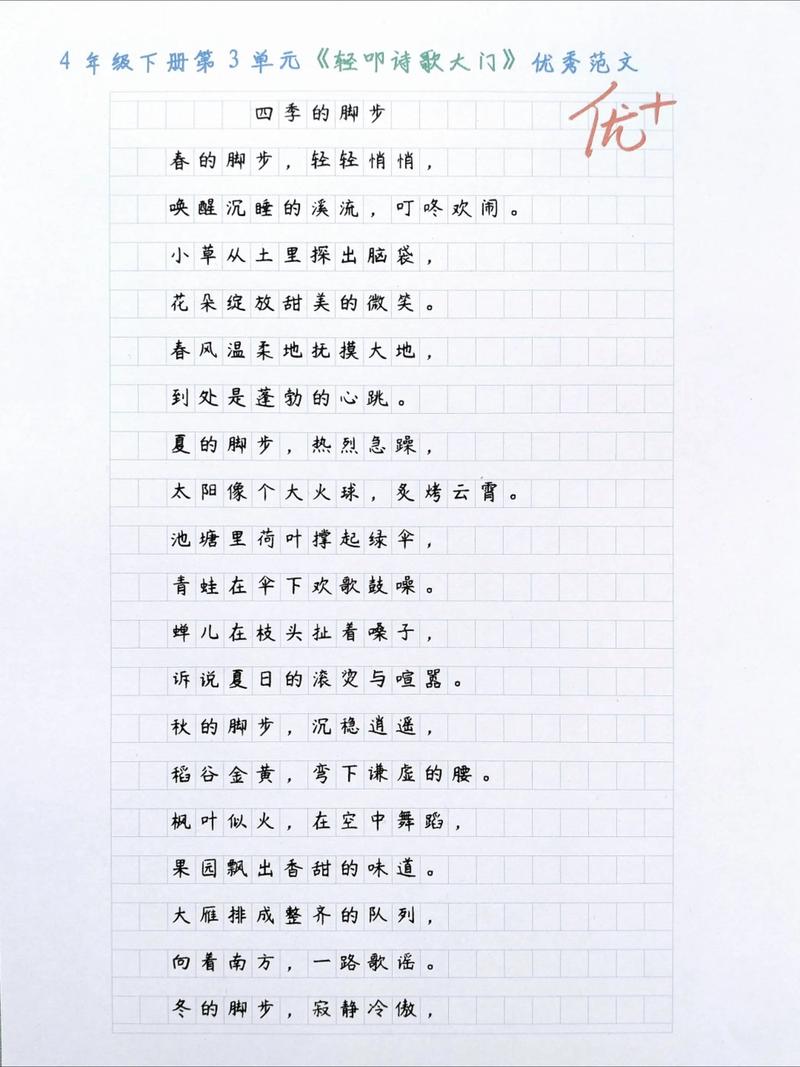 4年级下册第3单元《轻叩诗歌大门》优秀范文
优+
四季的脚步
春的脚步，轻轻悄悄，
唤醒沉睡的溪流，叮咚欢闹。
小草从土里探出脑袋，
花朵绽放甜美的微笑。
春风温柔地抚摸大地，
到处是蓬勃的心跳。
夏的脚步，热烈急躁，
太阳像个大火球，炙烤云霄。
池塘里荷叶撑起绿伞，
青蛙在伞下欢歌鼓噪。
蝉儿在枝头扯着嗓子，
诉说夏日的滚烫与喧嚣。
秋的脚步，沉稳逍遥，
稻谷金黄，弯下谦虚的腰。
枫叶似火，在空中舞蹈，
果园飘出香甜的味道。
大雁排成整齐的队列，
向着南方，一路歌谣。
冬的脚步，寂静冷傲，